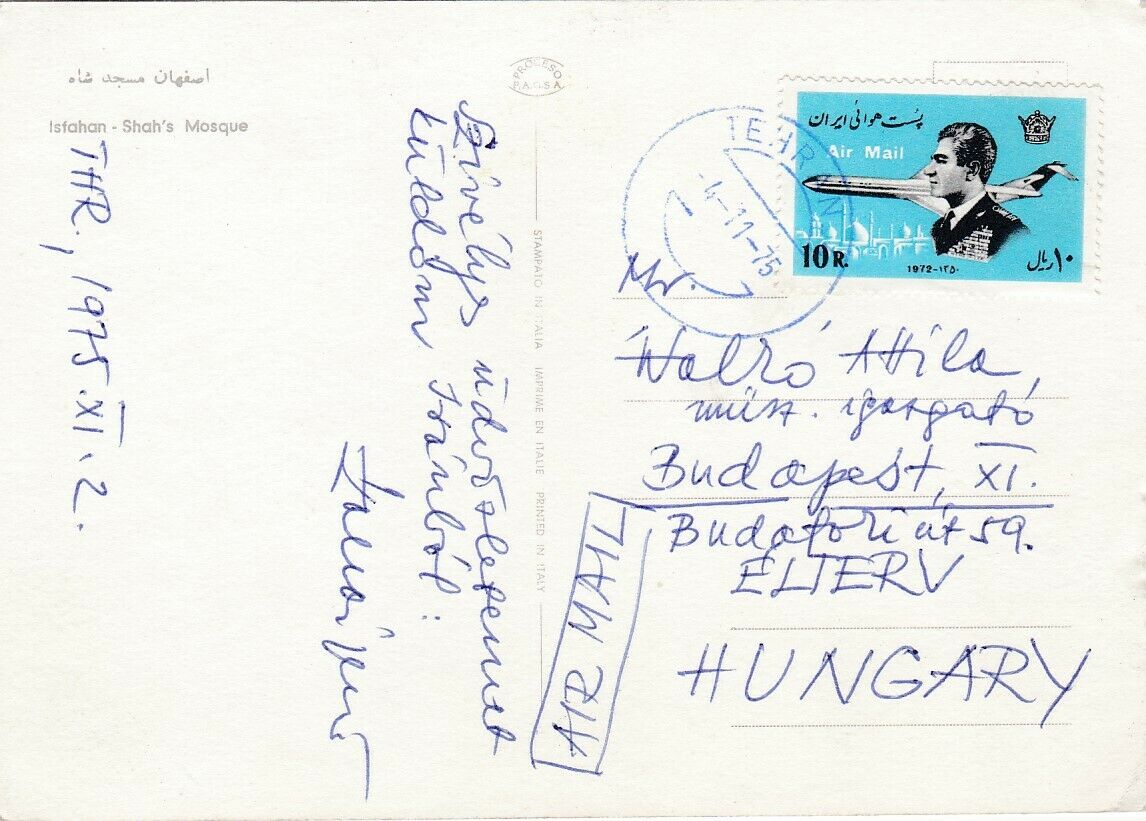 اصفهان مسجد شاه
Isfahan - Shah's Mosque
THR., 1975.XI.2.
Szivélyes üdvözletemet
küldöm Iránból:
PROCESO
P.A.G.S.A
STAMPATO IN ITALIA IMPRIME EN ITALIE PRINTED IN ITALY
AIR MAIL
TEHRAN
-4-11-75
پست هوائی ایران
Air Mail
10 R.
1972-۱۳۵۰
۱۰ ریال
Mr.
Attila,
műsz. igazgató
Budapest, XI.
Budafoki út 59.
ELTERV
HUNGARY